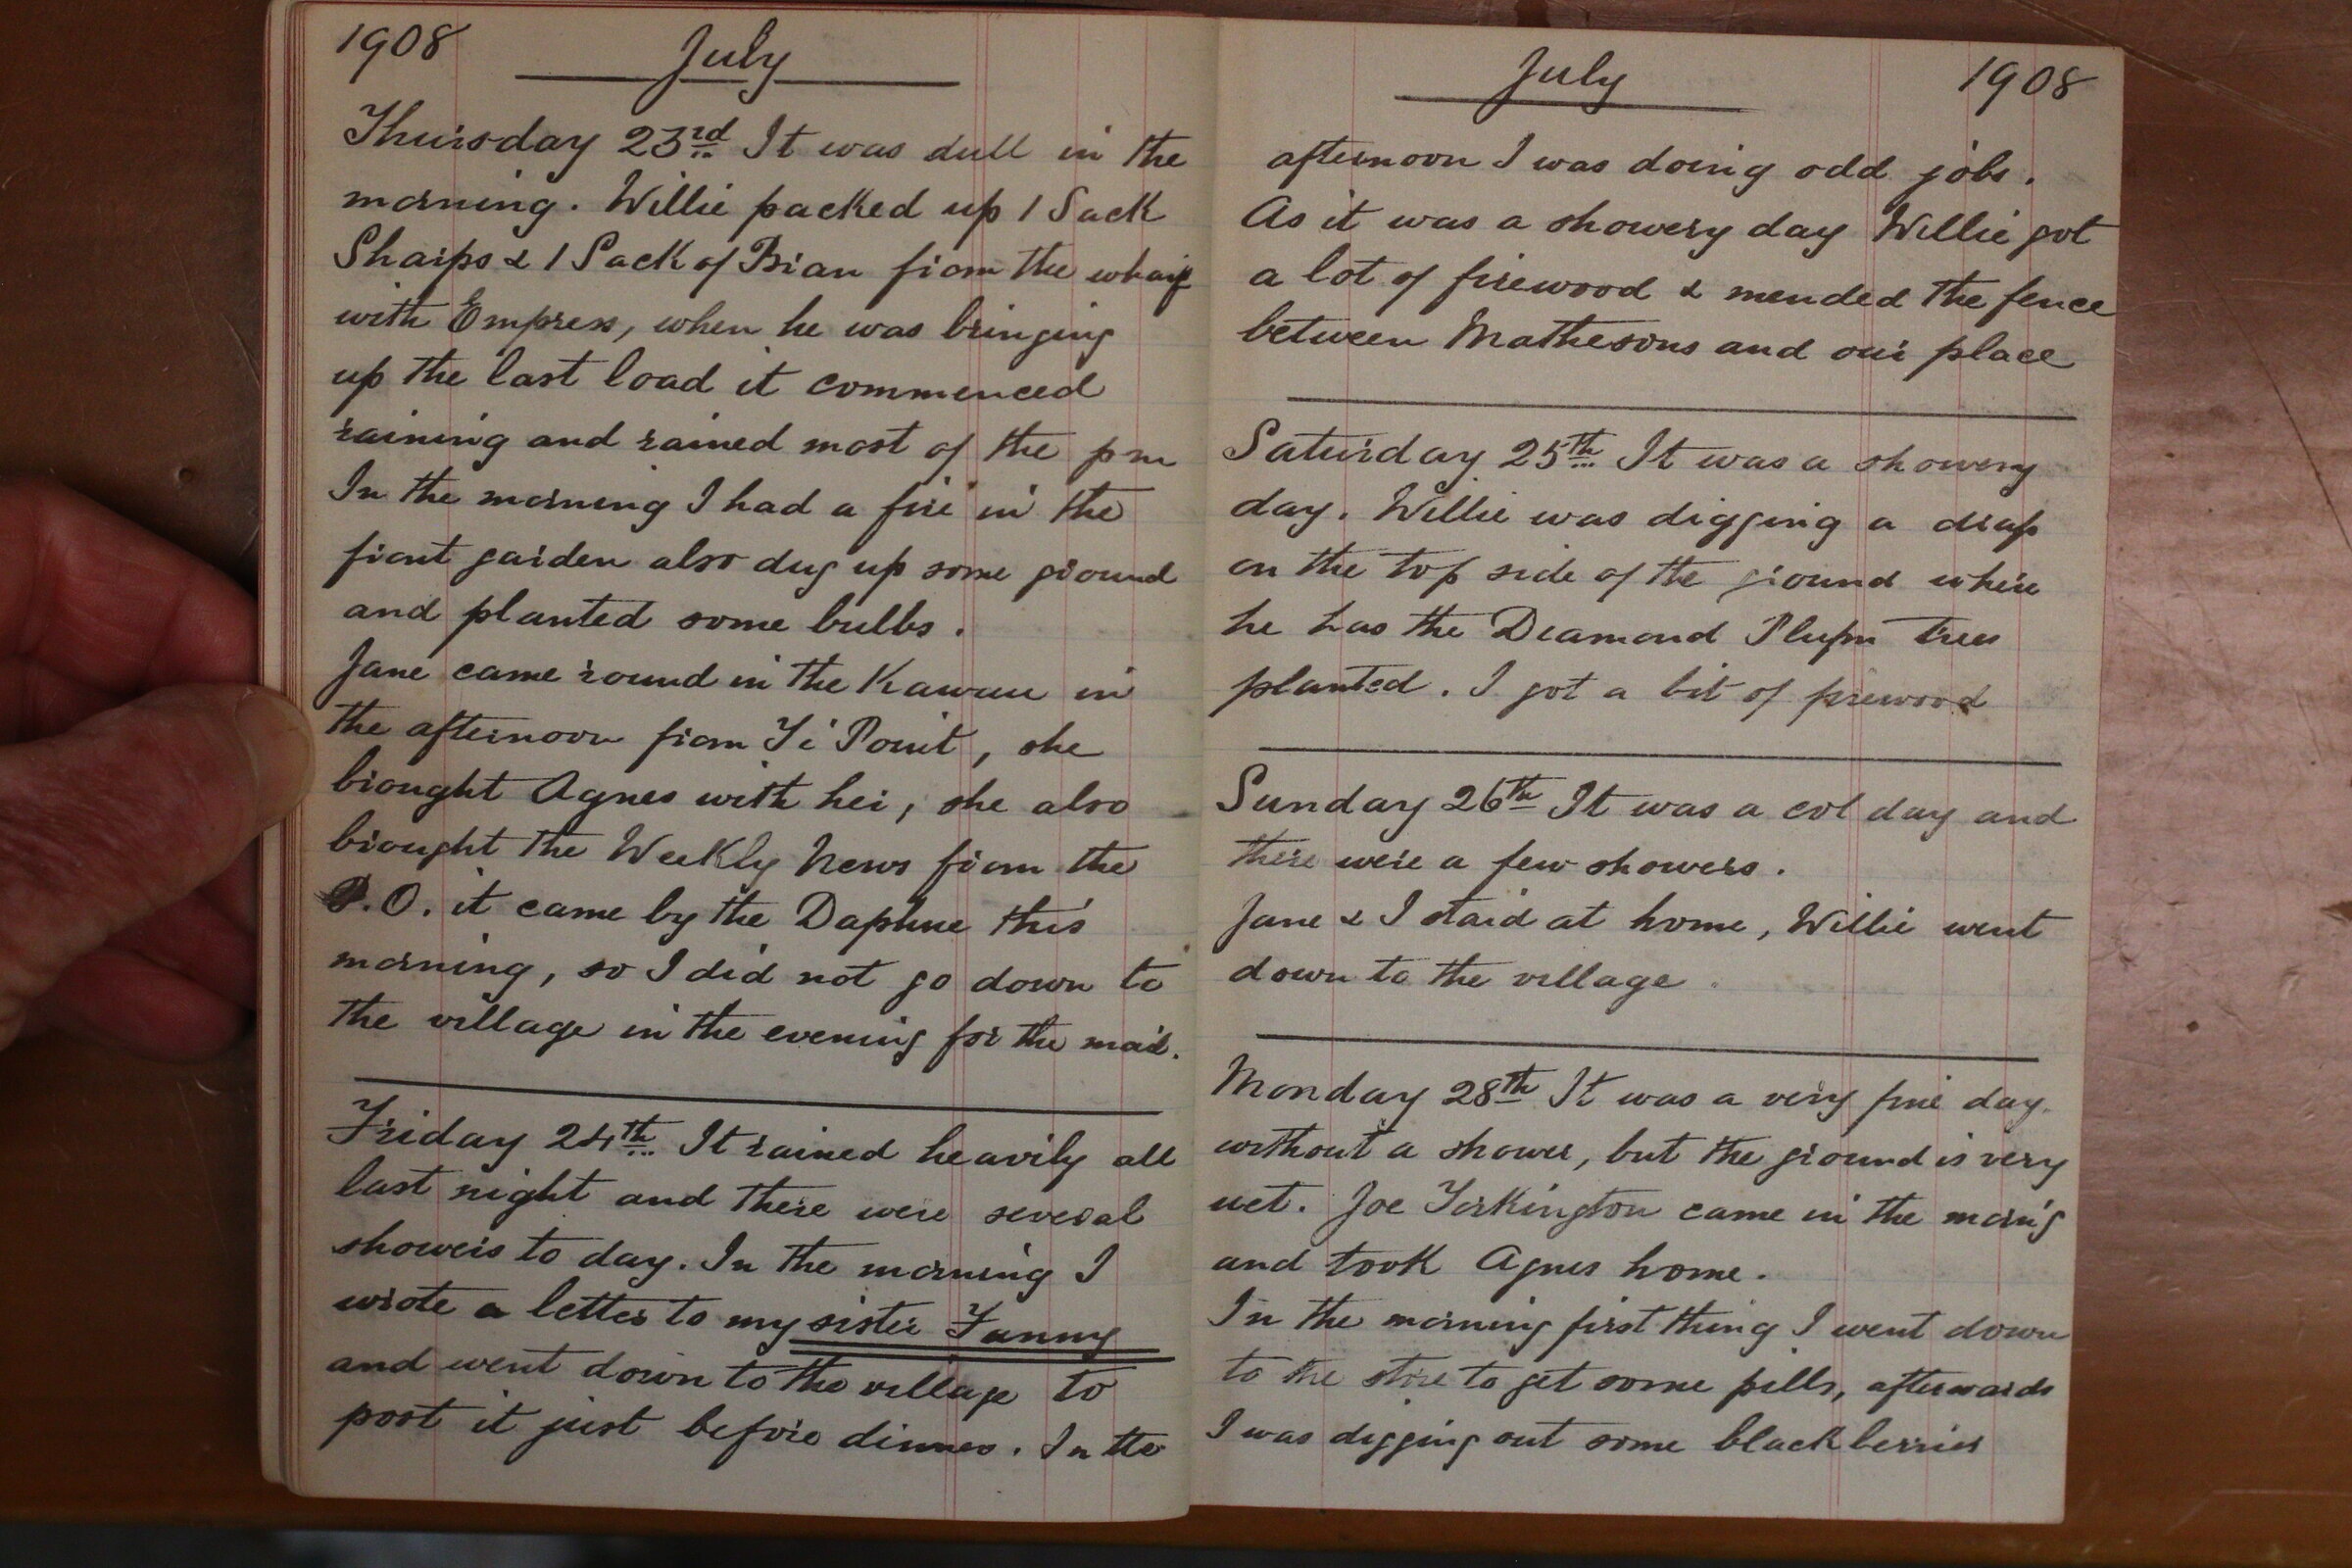 1908 July
Thursday 23rd It was dull in the
morning. Willie packed up 1 Sack
Sharps & 1 Sack of Bran from the wharf
with Empress, when he was bringing
up the last load it commenced
raining and rained most of the pm
In the morning I had a fire in the
front garden also dug up some ground
and planted some bulbs.
Jane came round in the Kawau in
the afternoon from Ti Point, she
brought Agnes with her, she also
brought the Weekly News from the
P.O. it came by the Daphne this
morning, so I did not go down to
the village in the evening for the mail.
Friday 24th It rained heavily all
last night and there were several
showers to day. In the morning I
wrote a letter to my sister Fanny
and went down to the village to
post it just before dinner. In the
July 1908
afternoon I was doing odd jobs.
As it was a showery day Willie got
a lot of firewood & mended the fence
between Mathesons and our place
Saturday 25th It was a showery
day. Willie was digging a drap
on the top side of the ground where
he has the Diamond Plupm trees
planted. I got a bit of firewood
Sunday 26th It was a col day and
there were a few showers.
Jane & I staid at home, Willie went
down to the village.
Monday 28th It was a very fine day
without a shower, but the ground is very
wet. Joe Torkington came in the morn'g
and took Agnes home.
In the morning first thing I went down
to the store to get some pills, afterwards
I was digging out some blackberries